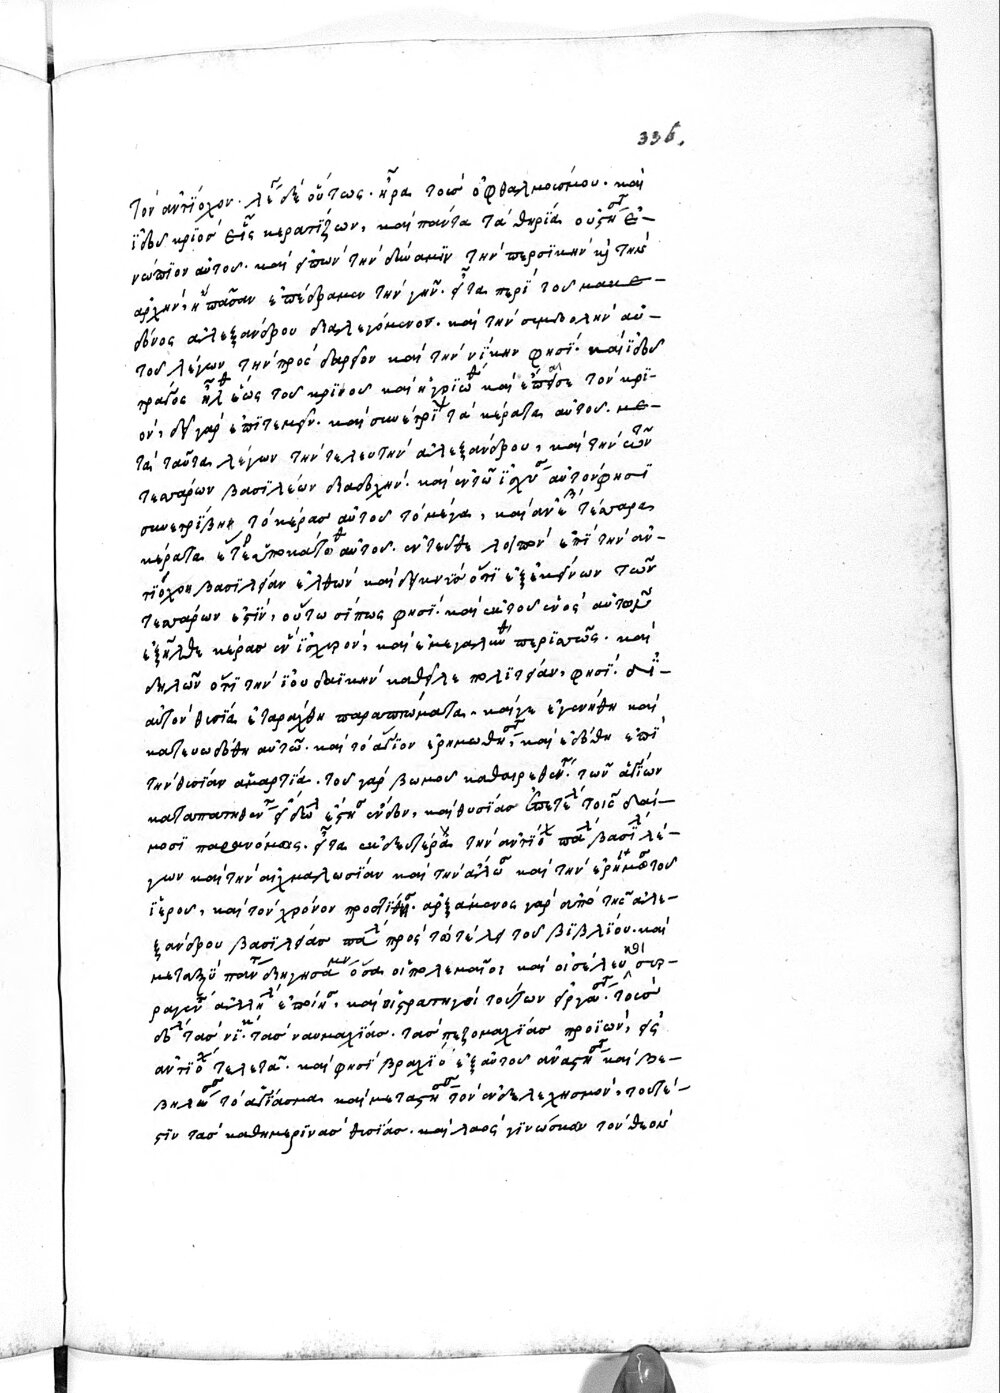 336.
τὸν ἀντίοχον. λέγει δὲ οὕτως. ἦρα τοὺς ὀφθαλμούς μου. καὶ
ἰδοὺ κριὸς εἷς κερατίζων, καὶ πάντα τὰ θηρία οὐ στήσεται ἐ-
νώπιον αὐτοῦ. καὶ εἰπὼν τὴν δύναμιν τὴν περσικὴν καὶ τὴν
ἀρχὴν, ἣ πᾶσαν ἐπέδραμεν τὴν γῆν. εἶτα περὶ τοῦ μακε-
δόνος ἀλεξάνδρου διαλεγόμενος. καὶ τὴν συμβολὴν αὐ-
τοῦ λέγων τὴν πρὸς δαρεῖον καὶ τὴν νίκην φησί. καὶ ἰδοὺ
τράγος ἦλθεν ἕως τοῦ κριοῦ καὶ ἠγριώθη καὶ ἔπαισε τὸν κρι-
όν, καὶ συνέτριψε τὰ κέρατα αὐτοῦ. με-
τὰ ταῦτα λέγων τὴν τελευτὴν ἀλεξάνδρου, καὶ τὴν τῶν
τεσσάρων βασιλέων διαδοχήν. καὶ ἐν τῷ ἰσχῦσαι αὐτὸν φησὶ
συνετρίβη τὸ κέρας αὐτοῦ τὸ μέγα, καὶ ἀνέβη τέσσαρα
κέρατα ἕτερα ὑποκάτω αὐτοῦ. ἐντεῦθεν λοιπὸν ἐπὶ τὴν ἀν-
τιόχου βασιλείαν ἐλθὼν καὶ δεικνὺς ὅτι ἐξ ἐκείνων τῶν
τεσσάρων ἐστὶν, οὕτω πως φησί. καὶ ἐκ τοῦ ἑνὸς αὐτῶν
ἐξῆλθε κέρας ἓν ἰσχυρὸν, καὶ ἐμεγαλύνθη περισσῶς. καὶ
δηλῶν ὅτι τὴν ἰουδαϊκὴν καθεῖλε πολιτείαν, φησί. δι'
αὐτὸν θυσία ἐταράχθη παραπτώματα. καί γε ἐγενήθη καὶ
κατευωδώθη αὐτῷ. καὶ τὸ ἅγιον ἐρημωθήσεται, καὶ ἐδόθη ἐπὶ
τὴν θυσίαν ἁμαρτία. τοῦ γὰρ βωμοῦ καθαιρεθέντος. τῶν ἁγίων
καταπατηθέντων εἴδωλον ἔστησεν ἔνδον, καὶ θυσίας ἐπετέλει τοῖς δαί-
μοσι παρανόμους. εἶτα ἐκ δευτέρου τὴν ἀντιόχου πάλιν βασιλείαν λέ-
γων καὶ τὴν αἰχμαλωσίαν καὶ τὴν ἅλωσιν καὶ τὴν ἐρήμωσιν τοῦ
ἱεροῦ, καὶ τὸν χρόνον προστίθησι. ἀρξάμενος γὰρ ἀπὸ τῆς ἀλε-
ξάνδρου βασιλείας πάλιν πρὸς τῷ τέλει τοῦ βιβλίου. καὶ
μεταξὺ πάντα διηγησάμενος ὅσα οἱ πτολεμαῖοι καὶ οἱ σέλευκοι συρ-
ραγέντες ἀλλήλοις ἐποίησαν, καὶ οἱ στρατηγοὶ τούτων εἰργάσαντο. τοὺς
δόλους τὰς νίκας. τὰς ναυμαχίας. τὰς πεζομαχίας προϊὼν, εἰς
ἀντίοχον τελευτᾷ. καὶ φησὶ βραχίονες ἐξ αὐτοῦ ἀναστήσονται καὶ βε-
βηλώσουσι τὸ ἁγίασμα καὶ μεταστήσουσι τὸν ἐνδελεχισμόν, τουτέ-
στιν τὰς καθημερινὰς θυσίας. καὶ λαὸς γινώσκων τὸν θεὸν